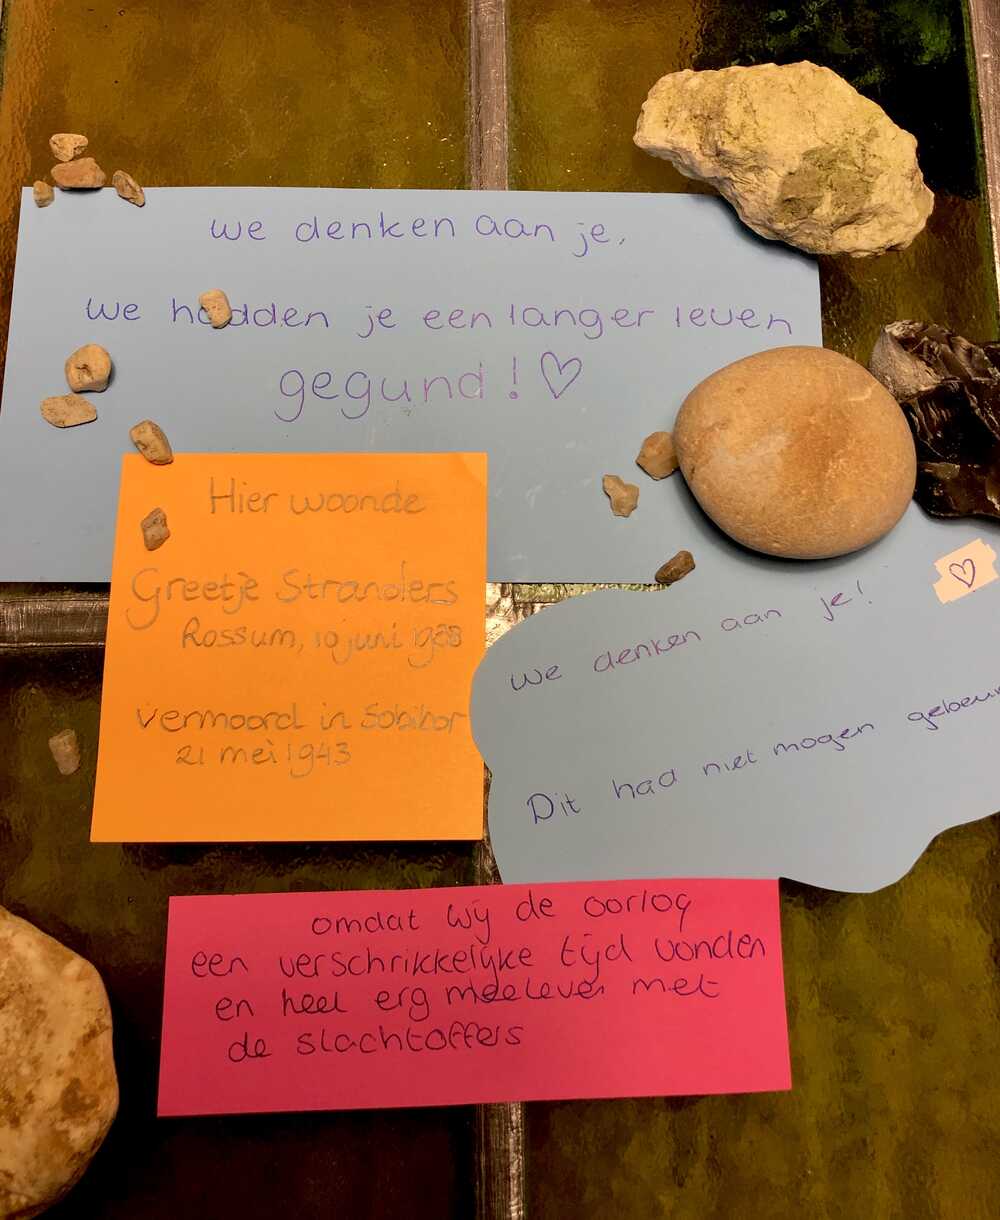 we denken aan je,
we hadden je een langer leven
gegund! ♡
Hier woonde
Greetje Stranders
Rossum, 10 juni 1928
vermoord in Sobibor
21 mei 1943
We denken aan je!
Dit had niet mogen
omdat wij de oorlog
een verschrikkelijke tijd vonden
en heel erg meeleven met
de slachtoffers